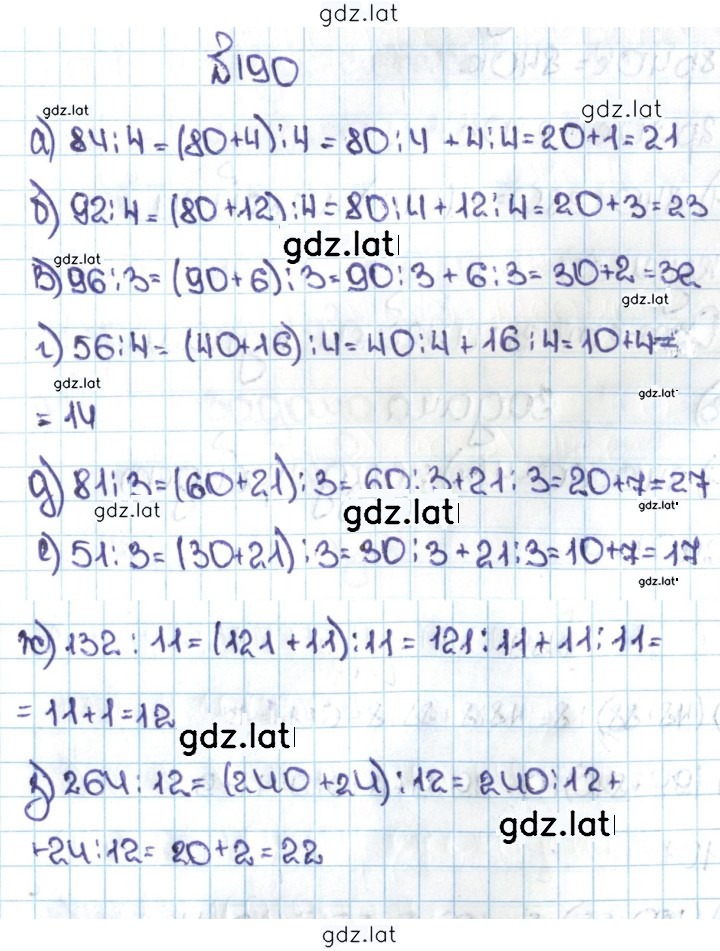 gdz.lat
№190
gdz.lat
gdz.lat
а) 84:4=(80+4):4=80:4+4:4=20+1=21
б) 92:4=(80+12):4=80:4+12:4=20+3=23
gdz.lat
gdz.lat
в) 96:3=(90+6):3=90:3+6:3=30+2=32
gdz.lat
г) 56:4=(40+16):4=40:4+16:4=10+4=
gdz.lat
gdz.lat
=14
д) 81:3=(60+21):3=60:3+21:3=20+7=27
gdz.lat
gdz.lat
gdz.lat
е) 51:3=(30+21):3=30:3+21:3=10+7=17
gdz.lat
ж) 132:11=(121+11):11=121:11+11:11=
=11+1=12
gdz.lat
з) 264:12=(240+24):12=240:12+
gdz.lat
+24:12=20+2=22
gdz.lat